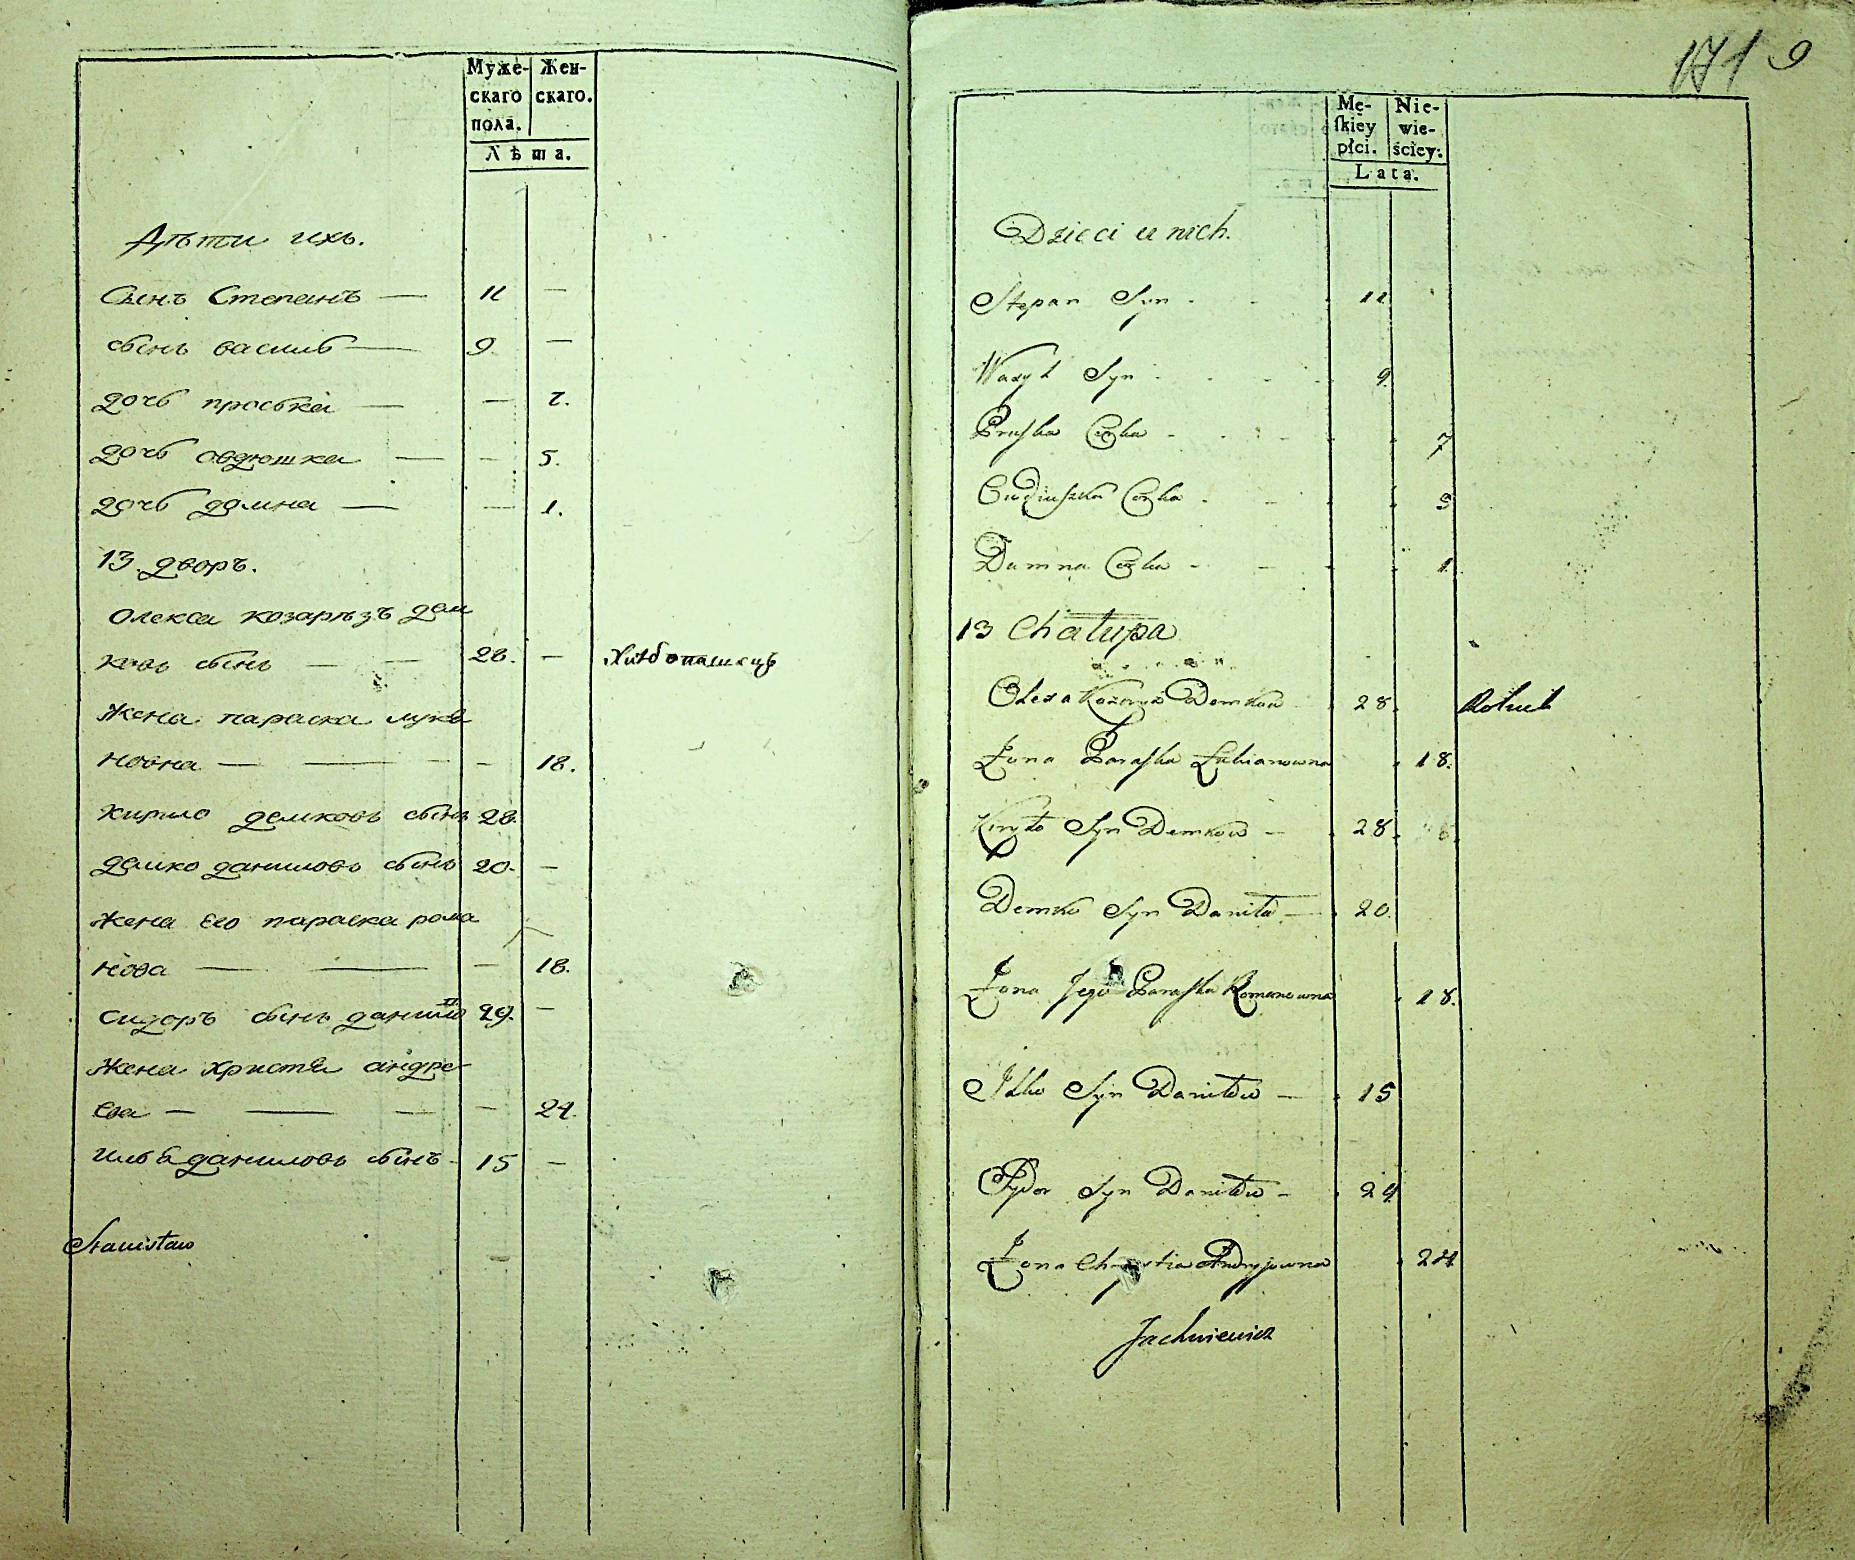 Муже-
скаго
пола.
Жен-
скаго.
Лѣта.
Дѣти ихъ.
Сынъ Степанъ — 11 —
сынъ василь — 9. —
дочь праська — — 7.
дочь овдюшка — — 5.
дочь домна — — 1.
13. дворъ.
Олекса козарѣзъ дем
ковъ сынъ — — 28. — Хлѣбопашецъ
Жена параска лукя
новна — — — 18.
кирило демковъ сынъ 28.
демко даниловъ сынъ 20. —
жена его параска рома
нова — — — 18.
сидоръ сынъ данило 29. —
Жена христя андре
ева — — — — 24.
илья даниловъ сынъ - 15 —
Stanisław
171 9
Mę-
skiey
płci.
Nie-
wie-
ściey.
Lata.
Dzieci u nich.
Stepan Syn 11
Wasyl Syn 9.
Praska Corka 7
Owdiuszka Corka 5
Dumna Corka 1
13 Chałupa
Olexa Kozoryz Demkow 28. Rolnik
Żona Paraska Łukianowna 18.
Kiryło Syn Demkow — 28.
Demko Syn Daniła — 20.
Żona Jego Paraska Romanowna 18.
Ilko Syn Daniłow — 15
Sydor Syn Daniłow — 29
Żona Chrystia Andryjowna 24
Jachniewicz